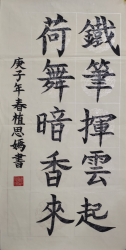 鐵筆揮雲起
荷舞暗香來
庚子年春植思媽書